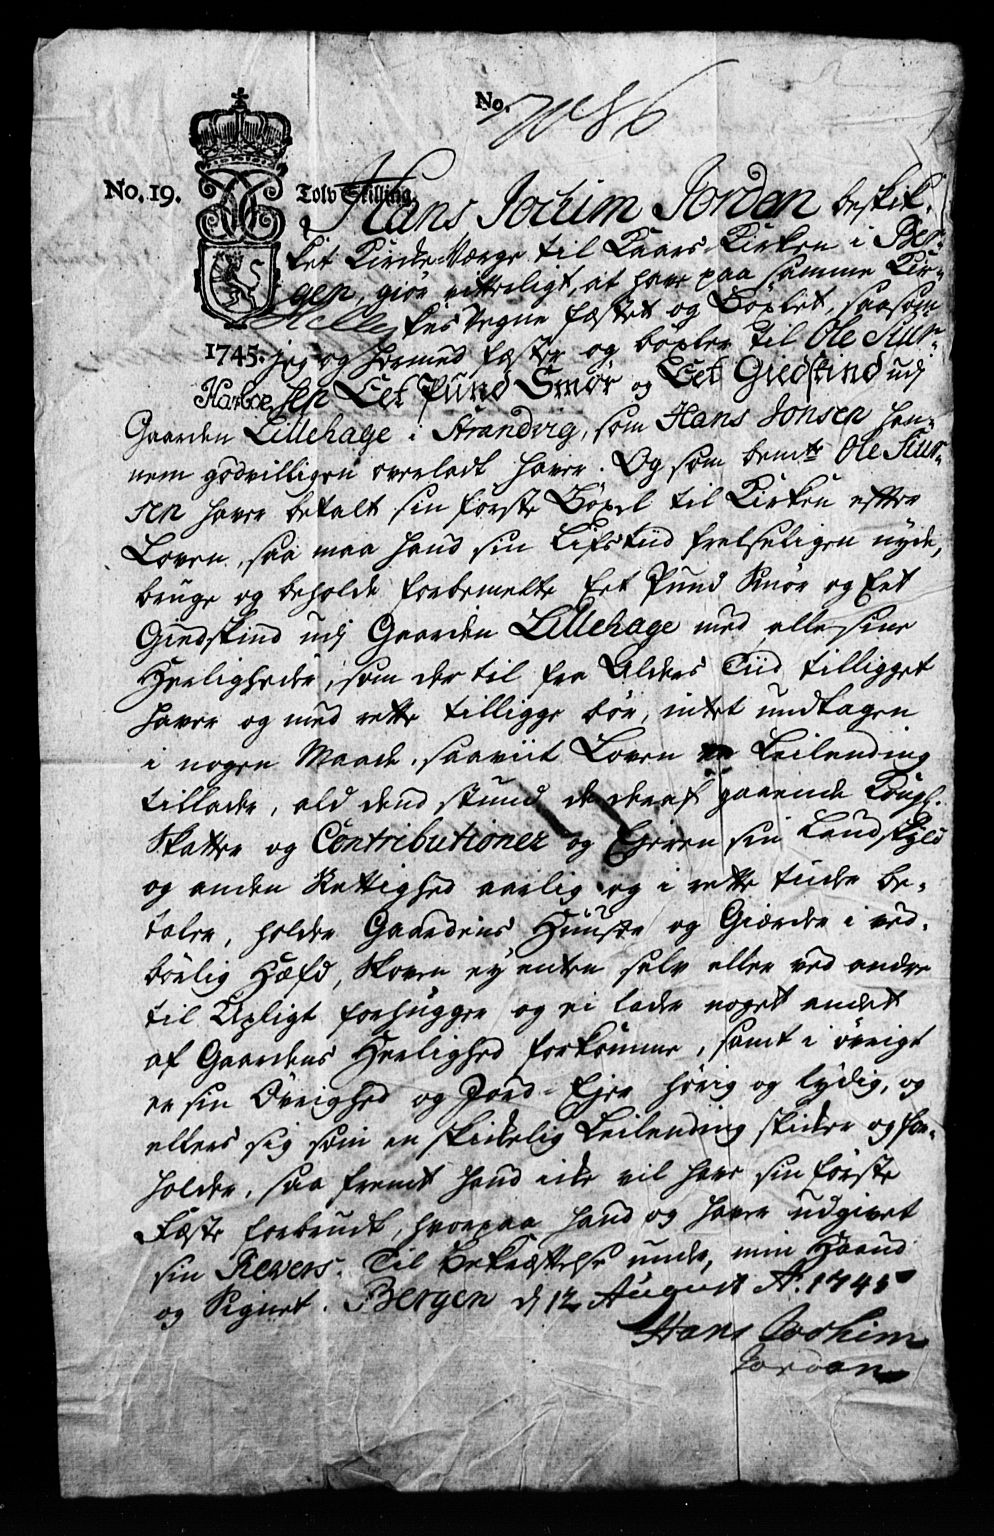 No.
No. 19. Tolv Skilling.
Hans Jochim Jordan beskik-
ket Kircke-Værge til Kaars-Kirken i Ber-
gen, giør vitterligt, at have paa samme Kir-
kes Vegne fæstet og Böxlet, saasom
1745. jeg og hermed fæster og böxler til Ole Siur-
sen Eet Pund Smør og Eet Giedskind udj
Gaarden Lillehage i Strandvig, som Hans Jonsen han-
nem godvilligen overladt haver. Og som bemte Ole Siur-
sen haver betalt sin første Böxel til Kirken efter
Loven, saa maa hand sin Lifs tiid frelseligen nyde,
bruge og beholde forbemelte Eet Pund Smør og Eet
Giedskind udj Gaarden Lillehage med alle sine
Herligheder, som der til fra Alders Tiid tilligget
haver og med rette tilligge bör, intet undtagen
i nogen Maade, saaviit Loven en Leilending
tillader, ald dend stund de deraf gaaende Kongl.
Skatter og Contributioner og Ejeren sin Landskyld
og anden Rettighed aarlig og i rette tiide be-
taler, holder Gaardens Huuse og Giærder i ved-
börlig Hæfd, Skoven ey enten selv eller ved andre
til Upligt forhugger og ei lader noget andet
af Gaardens Herlighed forkomme, samt i øvrigt
er sin Øvrighed og Jord-Ejer hörig og lydig, og
ellers sig som en skickelig Leilending skicker og for-
holder, saa fremt hand icke vil have sin förste
Fæste forbrudt, hvorpaa hand og haver udgivet
sin Revers. Til Bekræftelse under min Haand
og Signet. Bergen d 12 August Ao. 1745
Hans Jochim
Jordan